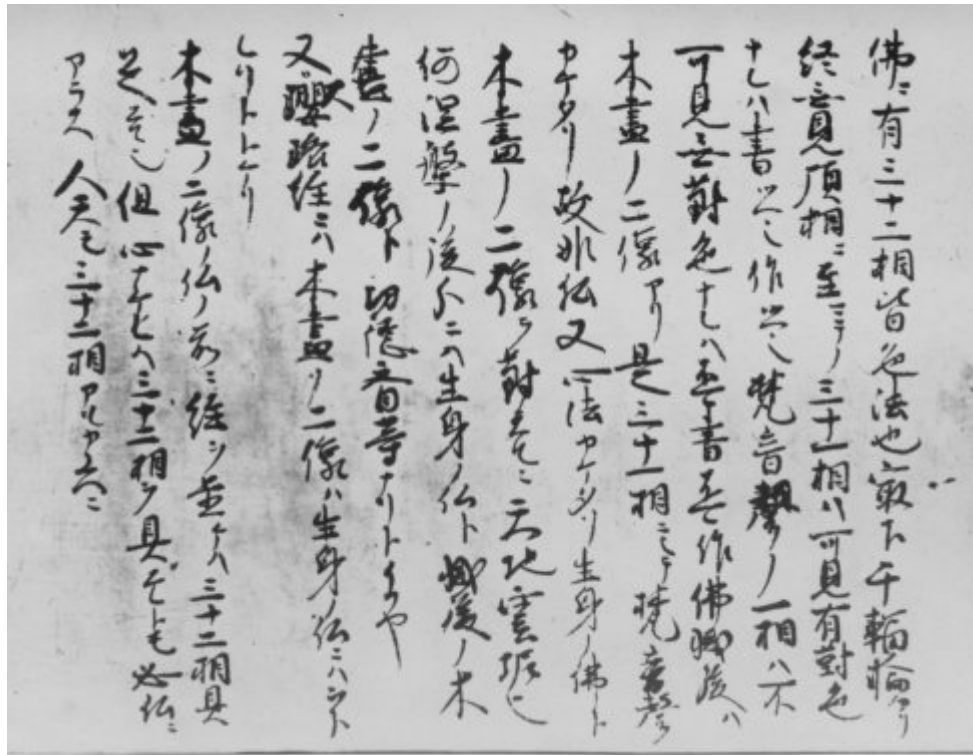 佛ニ有三十二相皆色法也最下千輻輪ヨリ
終無見頂相ニ至マテノ三十一相ハ可見有對色
ナレハ書ツヘシ作ツヘシ梵音聲ノ一相ハ不
可見無對色ナレハ不可書不可作佛滅後ハ
木畫ノ二像アリ是三十一相ニシテ梵音聲
カケタリ故非仏又心法カケタリ生身ノ佛ト
木畫ノ二像ヲ對スルニ天地雲泥也
何涅槃ノ後分ニハ生身ノ仏ト滅後ノ木
畫ノ二像ト功德斉等ナリトイフヤ
又大瓔珞経ニハ木畫ノ二像ハ生身仏ニハヲト
レリトトケリ
木畫ノ二像ノ仏ノ前ニ経ヲ置ケハ三十二相具
足スル也但心ナケレハ三十二相ヲ具セトモ必仏ニ
アラス人天モ三十二相アルカユヘニ